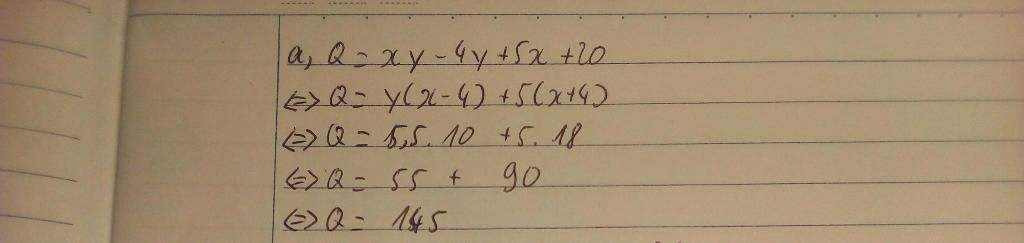 a, Q = xy - 4y + 5x + 20
<=> Q = y(x - 4) + 5(x + 4)
<=> Q = 5,5. 10 + 5. 18
<=> Q = 55 + 90
<=> Q = 145